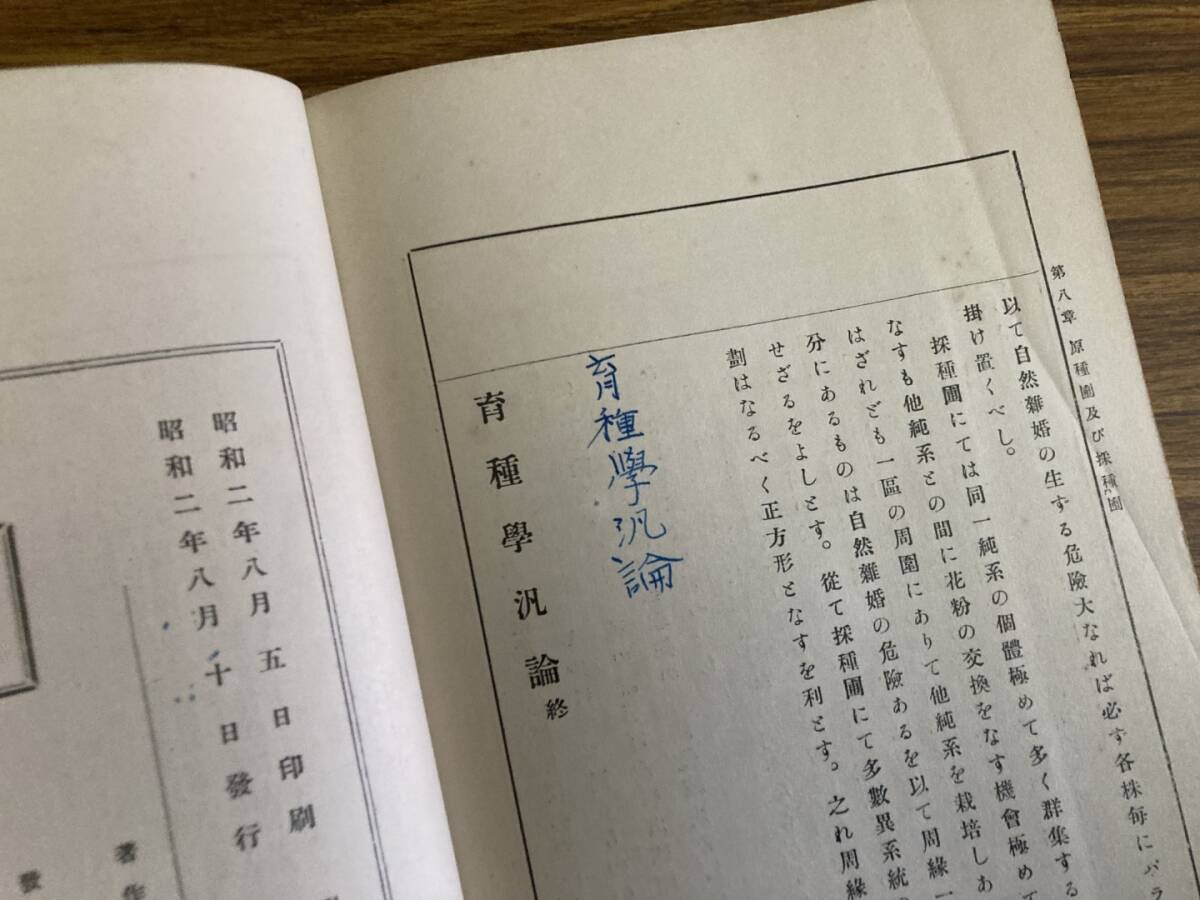 第八章 原種圃及び採種圃
以て自然雜婚の生ずる危險大なれば必ず各株每にパラ
掛け置くべし。
採種圃にては同一純系の個體極めて多く群集する
なすも他純系との間に花粉の交換をなす機會極めて
はざれども一區の周圍にありて他純系を栽培しあ
分にあるものは自然雜婚の危險あるを以て周緣一
せざるをよしとす。從て採種圃にて多數異系統
劃はなるべく正方形となすを利とす。之れ周緣
育種學汎論
育種學汎論 終
昭和二年八月五日印刷
昭和二年八月十日發行
著作
發